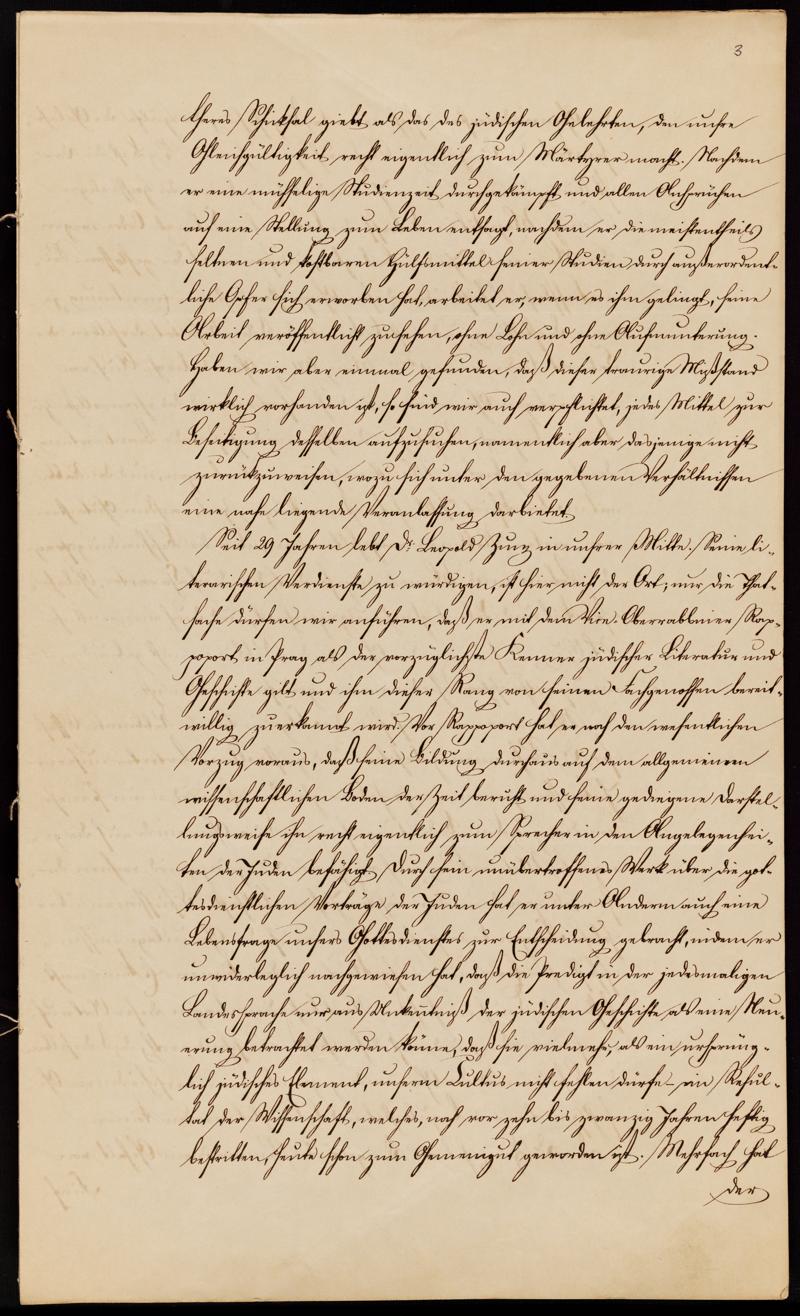 3
theres Schicksal giebt als das des jüdischen Gelehrten, den unsre
Gleichgültigkeit recht eigentlich zum Märtyrer macht. Nachdem
er eine mühselige Studienzeit durchgekämpft und allen Ansprüchen
auf eine Stellung zum Leben entsagt, nachdem er die meistentheils
seltnen und kostbaren Hülfsmittel seiner Studien durch außerordent-
liche Opfer sich erworben hat, arbeitet er, wenn es ihm gelingt, seine
Arbeit veröffentlicht zu sehen, ohne Lohn und ohne Aufmunterung.
Haben wir aber einmal gefunden, daß dieser traurige Mißstand
wirklich vorhanden ist, so sind wir auch verpflichtet, jedes Mittel zur
Beseitigung desselben aufzusuchen, namentlich aber dasjenige nicht
zurückzuweisen, wozu sich unter den gegebenen Verhältnissen
eine nahe liegende Veranlassung darbietet.
Seit 29 Jahren lebt Dr. Leopold Zunz in unsrer Mitte. Seine li-
terarischen Verdienste zu würdigen, ist hier nicht der Ort; nur die That-
sache dürfen wir anführen, daß er mit dem Vice-Oberrabbiner Rap-
poport in Prag als der vorzüglichste Kenner jüdischer Literatur und
Geschichte gilt und ihm dieser Rang von seinen Fachgenossen bereit-
willig zuerkannt wird. Vor Rappoport hat er noch den wesentlichen
Vorzug voraus, daß seine Bildung durchaus auf dem allgemeinen
wissenschaftlichen Boden der Zeit beruht und seine gediegene Darstel-
lungsweise ihn recht eigentlich zum Sprecher in den Angelegenhei-
ten der Juden befähigt. Durch sein unübertroffenes Werk über die got-
tesdienstlichen Vorträge der Juden hat er unter Anderm auch eine
Lebensfrage unsers Gottesdienstes zur Entscheidung gebracht, indem er
unwiderleglich nachgewiesen hat, daß die Predigt in der jedesmaligen
Landessprache nur aus Unkenntniß der jüdischen Geschichte als eine Neu-
erung betrachtet werden könne, daß sie vielmehr, als ein ursprüng-
lich jüdisches Element, unserm Cultus nicht fehlen dürfe – ein Resul-
tat der Wissenschaft, welches, noch vor zehn bis zwanzig Jahren heftig
bestritten, heute schon zum Gemeingut geworden ist. Mehrfach hat
der